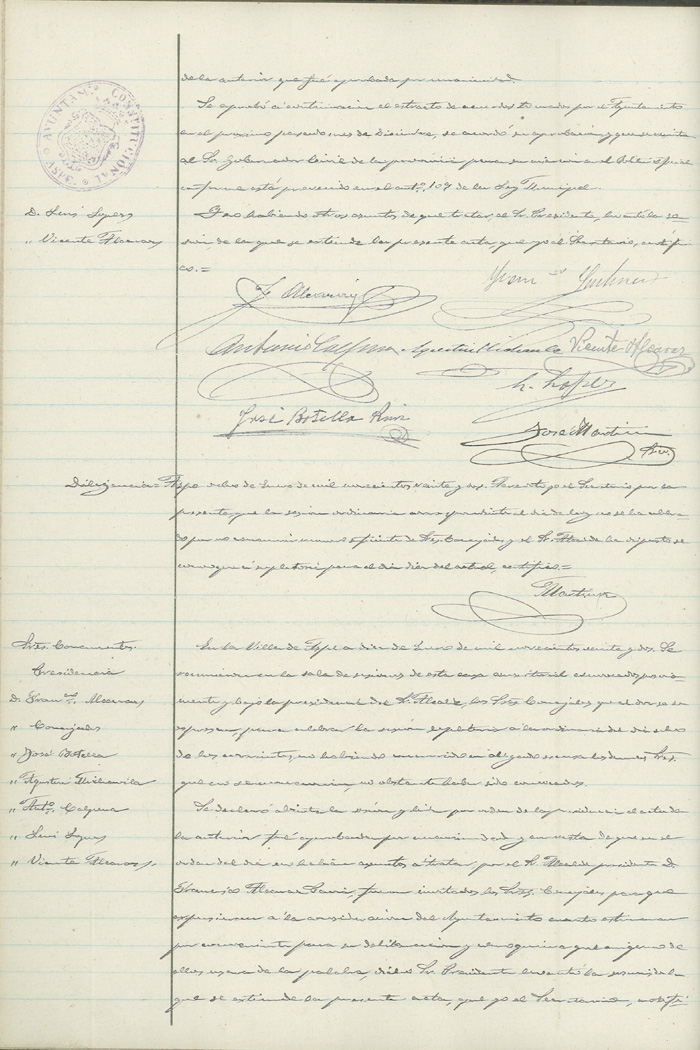 AYUNTAMTO CONSTITUCIONAL * ASPE *
de la anterior que fué aprobada por unanimidad.
Se aprobó á continuacion el extracto de acuerdos tomados por el Ayuntamiento
en el proximo pasado mes de Diciembre, se acordó su aprobacion y que se remita
al Sr. Gobernador Civil de la provincia para su insercion en el Boletin oficial
conforme está prevenido en el artº. 109 de la Ley Municipal.
D. Luis Lopez
" Vicente Alcaraz
Y no habiendo otros asuntos de que tratar, el Sr. Presidente, levantó la se-
sion de la que se extiende la presente acta, que yo el Secretario, certifi-
co.=
F. Alcaraz
Antonio Calpena
Agustin Michavila
Vicente Alcaraz
L. Lopez
José Botella Ruiz
José Martinez
Srio.
Diligencia = Aspe ocho de Enero de mil novecientos veinte y dos. Yo el Secretario por la
presente, que la sesion ordinaria correspondiente al dia de hoy no se ha celebra-
do por no concurrir numero suficiente de Sres. Concejales y el Sr. Alcalde ha dispuesto se
convoque á supletoria para el dia diez del actual, certifico.=
Martinez
Sres. Concurrentes.
Presidencia
D. Franco. Alcaraz
" Concejales
" José Botella
" Agustin Michavila
" Anto. Calpena
" Luis Lopez
" Vicente Alcaraz
En la Villa de Aspe a diez de Enero de mil novecientos veinte y dos. Se
reunieron en la sala de sesiones de esta casa consistorial convocados previa-
mente y bajo la presidencia del Sr. Alcalde, los Sres. Concejales que al dorso se
expresan, para celebrar la sesion supletoria á la ordinaria del dia ocho
de los corrientes, no habiendo concurrido ni alegado excusa los demas Sres.
que no se mencionan, no obstante haber sido convocados.
Se declaró abierta la sesion y leida por orden de la presidencia el acta de
la anterior fué aprobada por unanimidad y en vista de que en el
orden del dia no habian asuntos á tratar por el Sr. Alcalde presidente D.
Francisco Alcaraz, fueron invitados los Sres. Concejales para que
expusieran á la consideracion del Ayuntamiento cuanto estimaran
por conveniente para su deliberacion y como quiera que ninguno de
ellos usara de la palabra, dicho Sr. Presidente levantó la sesion de la
que se extiende la presente acta, que yo el Secretario, certifi-